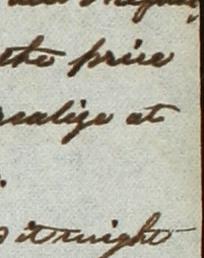 the price
realize at
it might